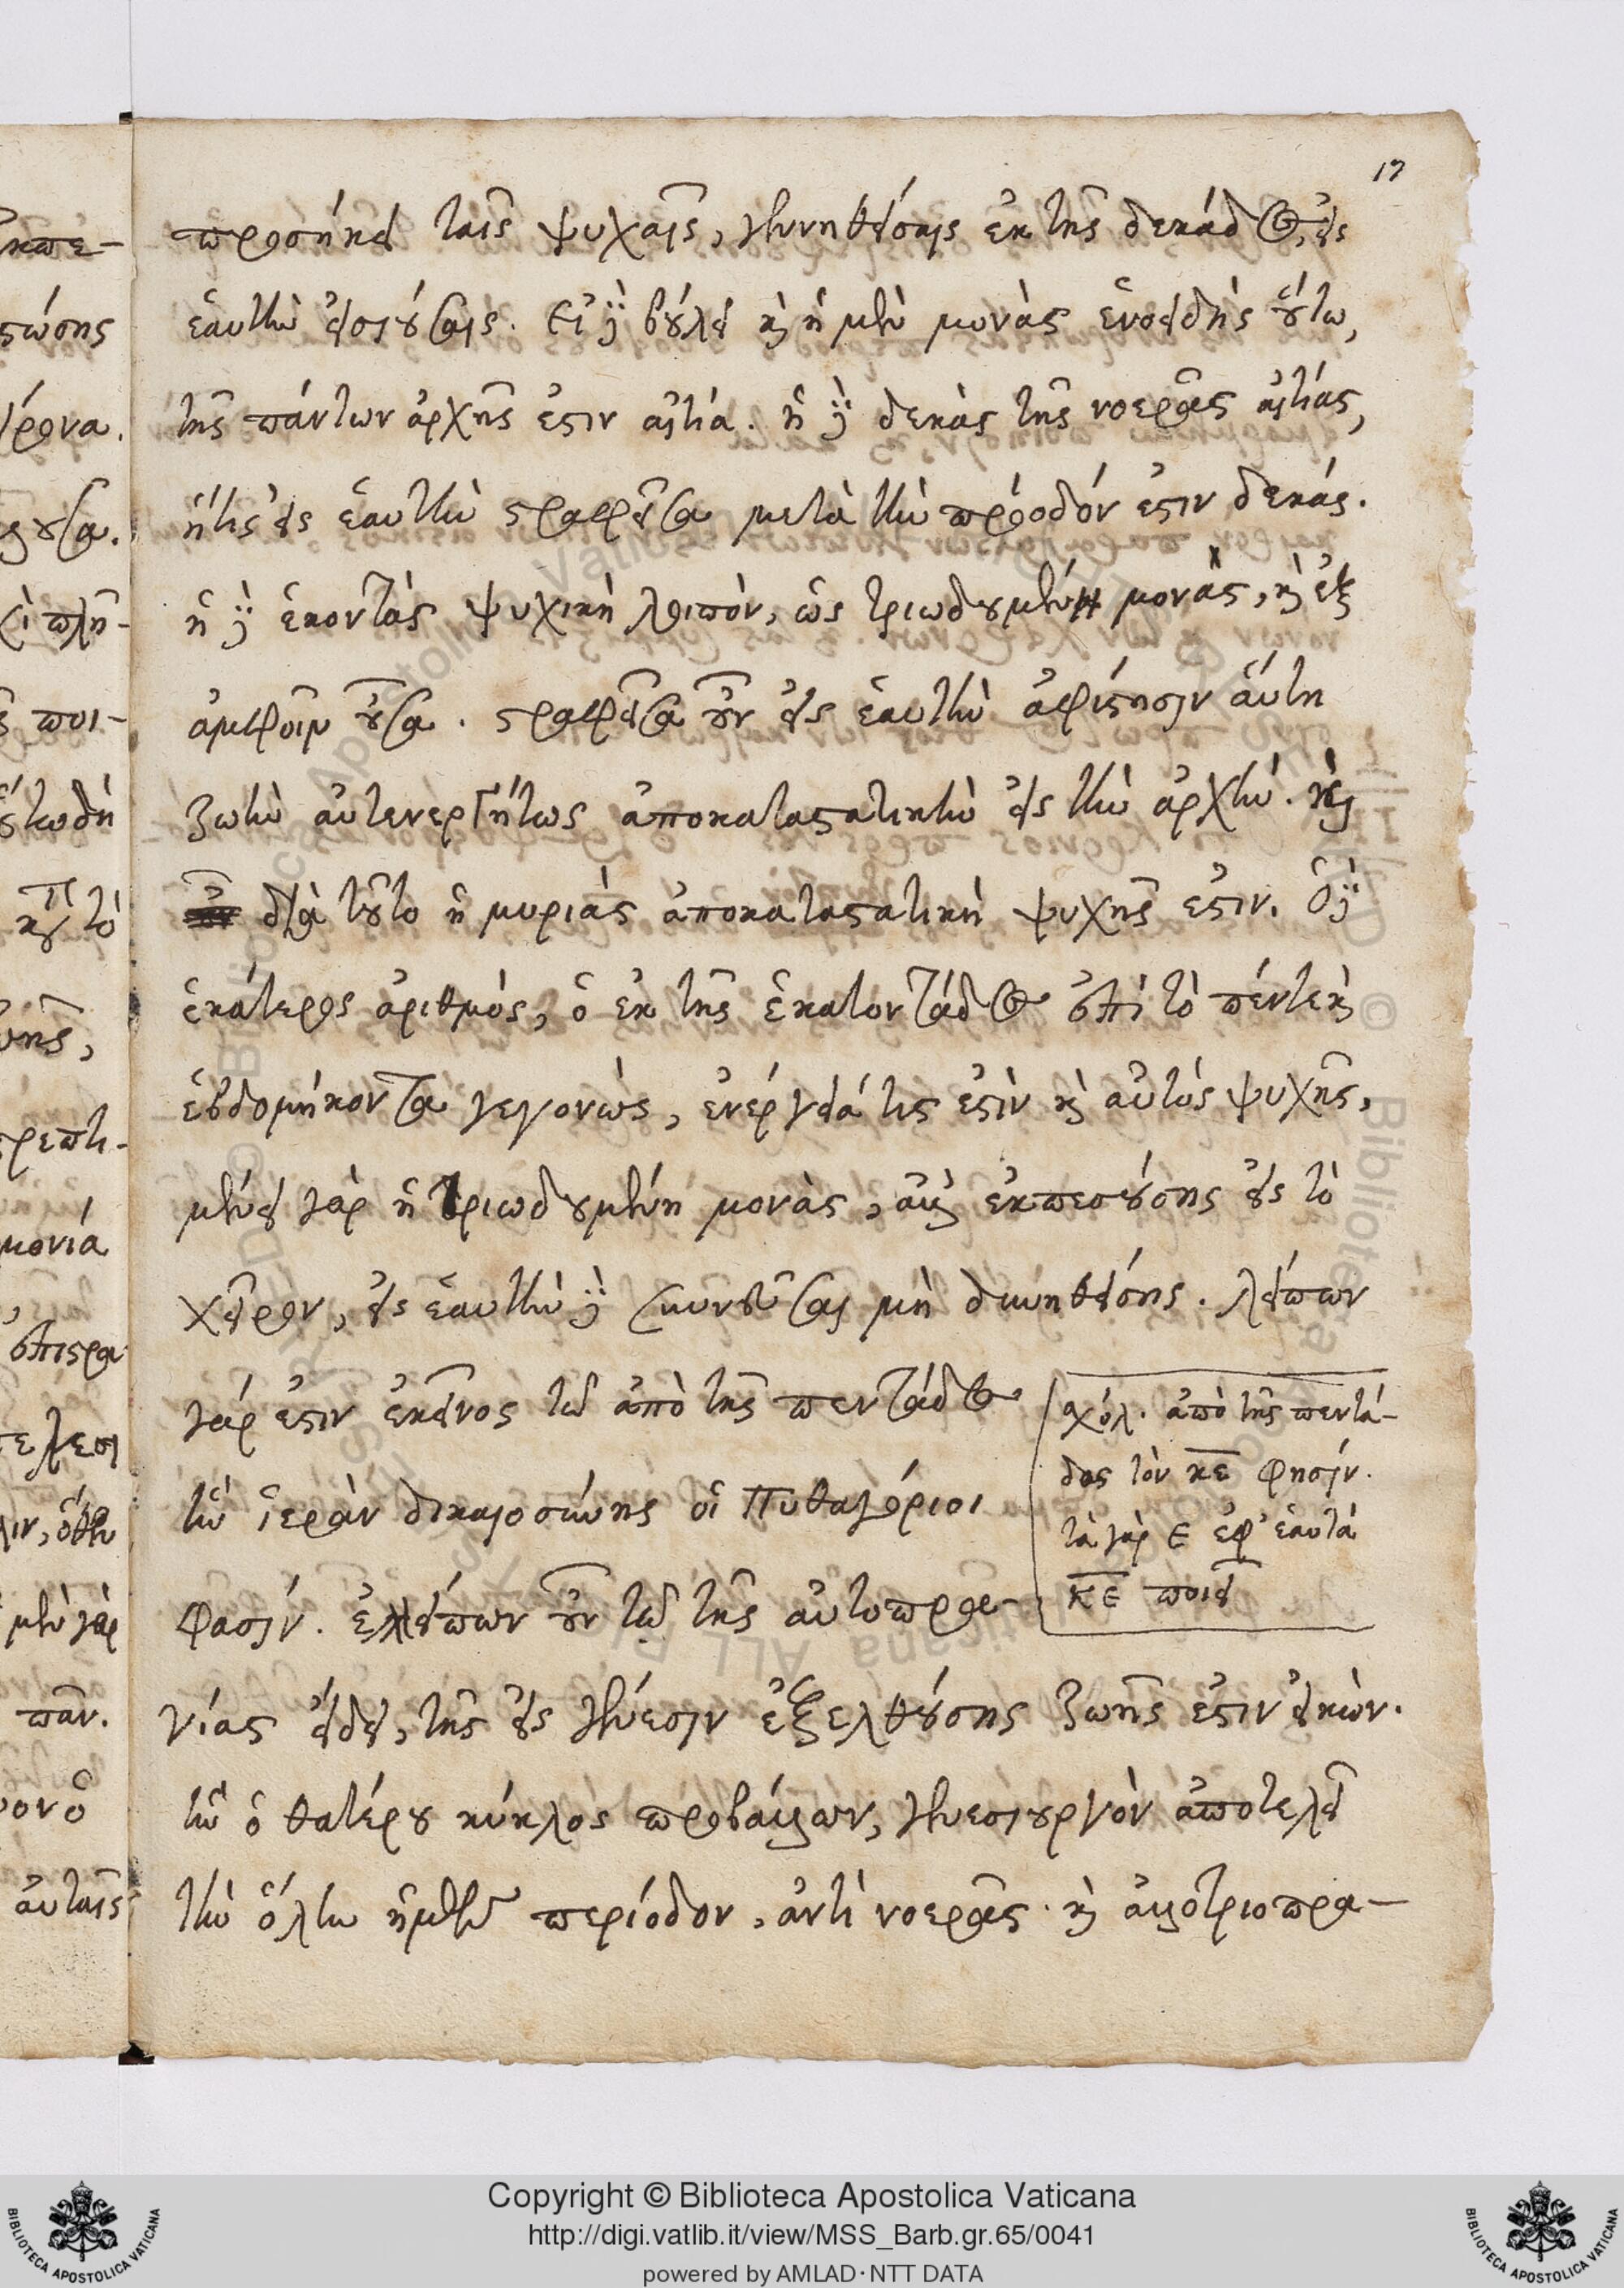 17
προσήκει ταῖς ψυχαῖς, γεννηθείσαις ἐκ τῆς δεκάδος, εἰς
ἑαυτὴν εἰσιούσαις. εἰ δὲ βούλει καὶ ἡ μὲν μονὰς ἑνοειδὴς οὕτω,
τῆς πάντων ἀρχῆς ἐστιν αἰτία. ἡ δὲ δεκὰς τῆς νοερᾶς αἰτίας,
ἥτις εἰς ἑαυτὴν στραφεῖσα μετὰ τὴν πρόοδόν ἐστιν δεκάς.
ἡ δὲ ἑκοντὰς ψυχικὴ λοιπόν, ὡς τριωδουμένη μονὰς, καὶ ἐξ
ἀμφοῖν οὖσα. στραφεῖσα οὖν εἰς ἑαυτὴν ἀφίστησιν αὕτη
ζωὴν αὐτενεργήτως ἀποκαταστατικὴν εἰς τὴν ἀρχήν. καὶ
διὰ τοῦτο ἡ μυριὰς ἀποκαταστατικὴ ψυχῆς ἐστιν. ὁ δὲ
ἑκάτερος ἀριθμὸς, ὁ ἐκ τῆς ἑκατοντάδος ἐπὶ τὸ πέντε καὶ
ἑβδομήκοντα γεγονὼς, ἐνέργειά τις ἐστὶν καὶ αὐτὸς ψυχῆς,
μένει γὰρ ἡ τριωδουμένη μονὰς, ἀλλ' ἐκπεσούσης εἰς τὸ
χεῖρον, εἰς ἑαυτὴν δὲ συννεῦσαι μὴ δυνηθείσης. λείπων
γάρ ἐστιν ἐκεῖνος τῷ ἀπὸ τῆς πεντάδος
ἣν ἱερὰν δικαιοσύνης οἱ Πυθαγόριοι
φασίν. ἐλλείπων οὖν τῷ τῆς αὐτοπρα-
γίας εἴδει, τῆς εἰς γένεσιν ἐξελθούσης ζωῆς ἐστιν εἰκών.
ἣν ὁ θατέρου κύκλος προβάλλων, γενεσιουργὸν ἀποτελεῖ
τὴν ὅλην ἡμῶν περίοδον, ἀντὶ νοερᾶς. καὶ ἀλλοτριοπρα-
σχόλ. ἀπὸ τῆς πεντά-
δος τὸν κε φησίν.
τὰ γὰρ ε ἐφ' ἑαυτὰ
κε ποιεῖ
Copyright © Biblioteca Apostolica Vaticana
http://digi.vatlib.it/view/MSS_Barb.gr.65/0041
powered by AMLAD·NTT DATA
BIBLIOTECA APOSTOLICA VATICANA
BIBLIOTECA APOSTOLICA VATICANA